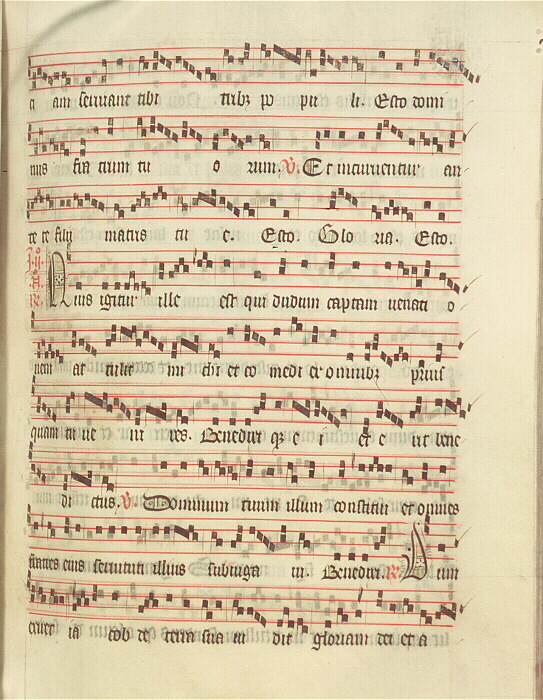 ci am seruiant tibi tribꝫ po pu li. Esto domi
nus fra trum tu o rum. ℣. Et incuruentur an
te te filij matris tu e. Esto. Glo ria. Esto.
Quis igitur ille est qui dudum captam uenati o
nem at tulit mi chi et co medi ex omnibꝫ prius
quam tu ue ni res. Benedixi ei et e rit bene
di ctus. ℣. Dominum tuum illum constitui et omnes
fratres eius seruituti illius subiuga ui. Benedixi. ℟. Dum
exiret ia cob de terra sua ui dit gloriam dei et a